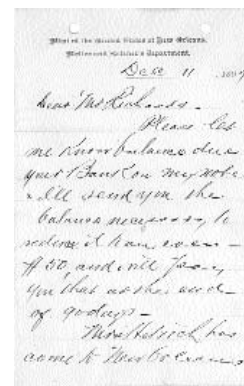 Mint of the United States at New Orleans,
Melter and Refiner's Department.
Dec 11
Dear Mr Richards.
Please let
me know balance due
your Bank on my note
& I'll send you the
balance necessary to
reduce it to an even
$50, and will pay
you that at the end
of 90 days -
Mrs has
come to New Orleans